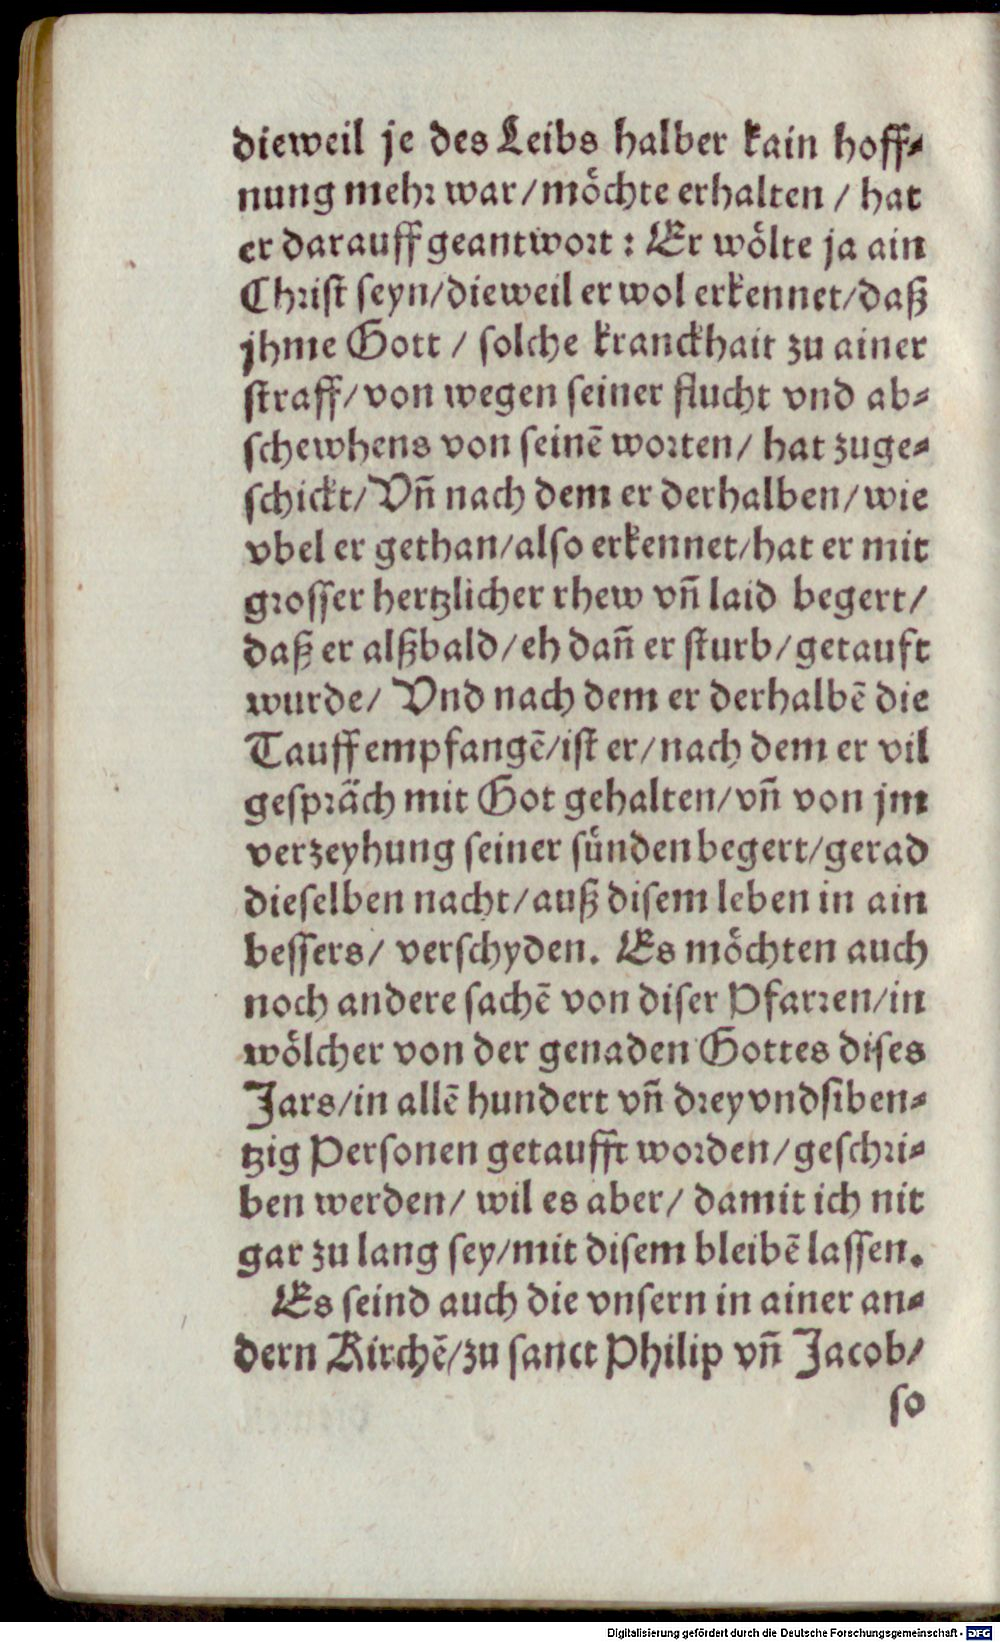 dieweil je des Leibs halber kain hoff⸗
nung mehr war/möchte erhalten / hat
er darauff geantwort : Er wölte ja ain
Christ seyn/dieweil er wol erkennet/daß
jhme Gott / solche kranckhait zu ainer
straff/von wegen seiner flucht vnd ab⸗
schewhens von seinē worten/ hat zuge⸗
schickt/Vñ nach dem er derhalben/wie
vbel er gethan/also erkennet/hat er mit
grosser hertzlicher rhew vñ laid begert/
daß er alßbald/eh dañ er sturb/getauft
wurde/ Vnd nach dem er derhalbē die
Tauff empfangē/ist er/nach dem er vil
gespräch mit Got gehalten/vñ von jm
verzeyhung seiner sünden begert/gerad
dieselben nacht/auß disem leben in ain
bessers/ verschyden. Es möchten auch
noch andere sachē von diser Pfarren/in
wölcher von der genaden Gottes dises
Jars/in allē hundert vñ drey vndsiben⸗
tzig Personen getaufft worden/geschri⸗
ben werden/ wil es aber/ damit ich nit
gar zu lang sey/mit disem bleibē lassen.
Es seind auch die vnsern in ainer an⸗
dern Kirchē/zu sanct Philip vñ Jacob/
so
Digitalisierung gefördert durch die Deutsche Forschungsgemeinschaft - DFG